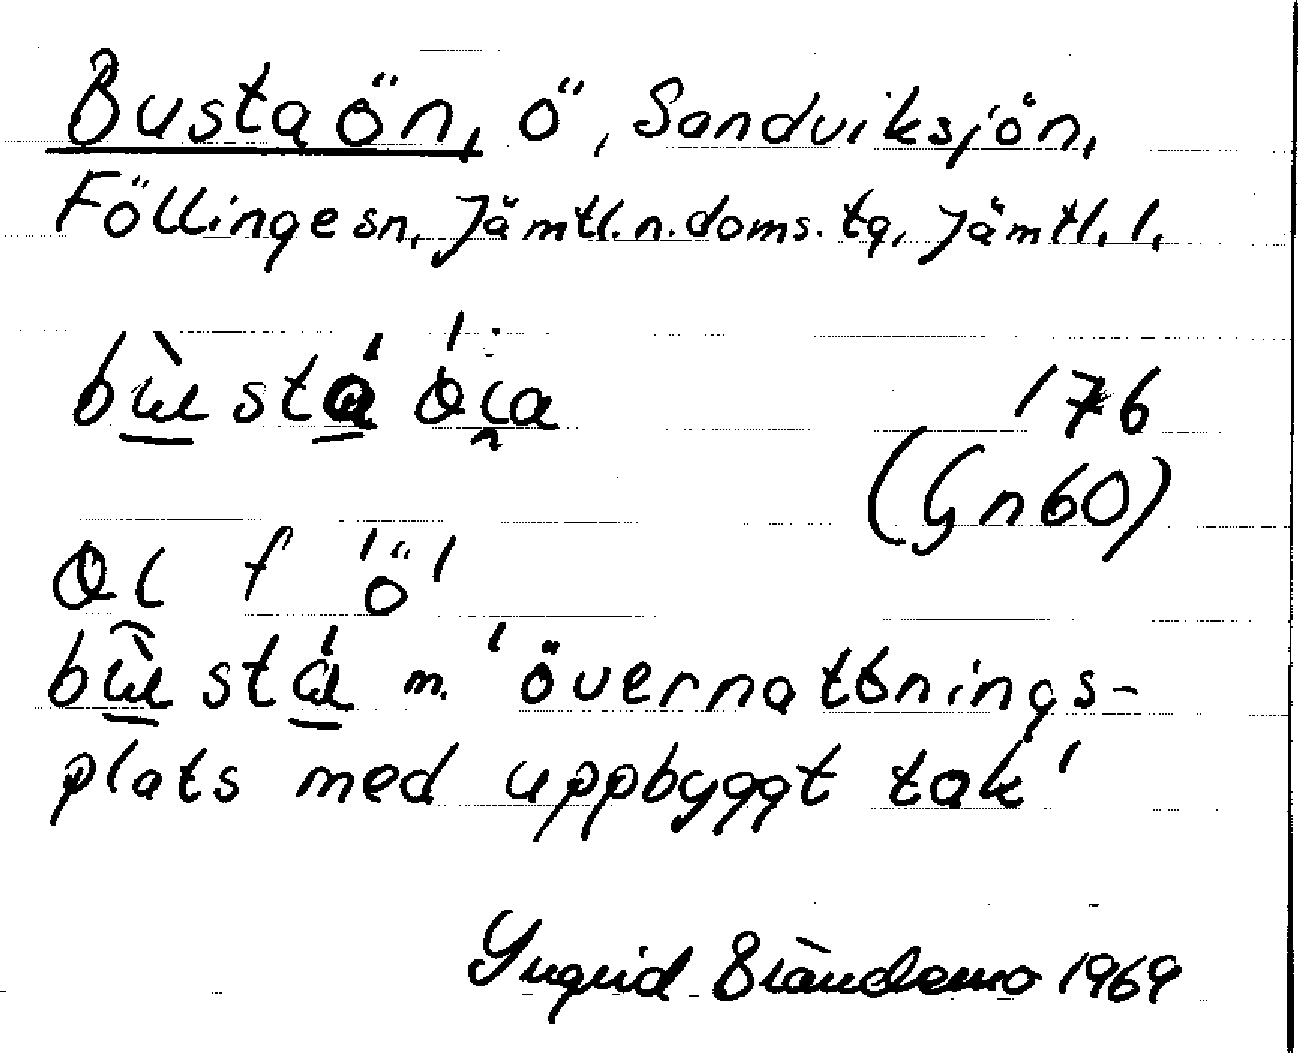 Bustaön, ö, Sandviksjön,
Föllinge sn, Jämtl. n. doms. tg, Jämtl. l.
176
(Gn 60)
f 'ö'
m. 'övernattnings-
plats med uppbyggt tak'
Ingrid Brändemo 1969